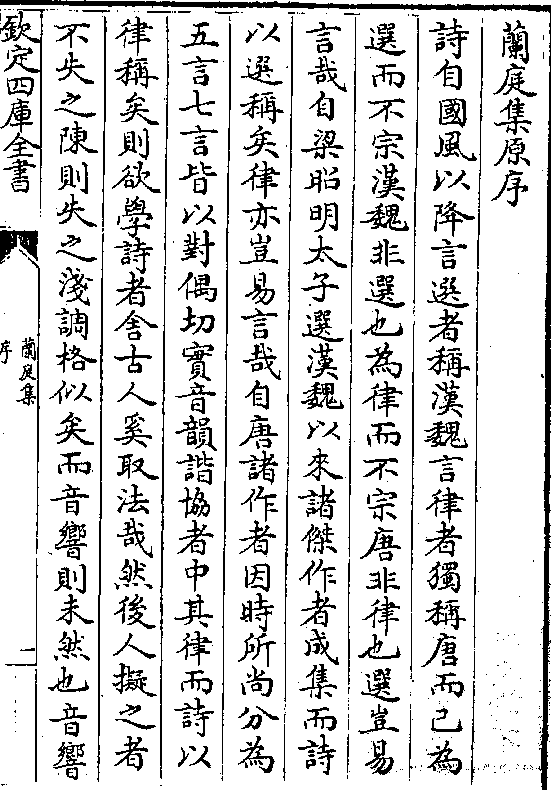 蘭庭集原序
詩自國風以降言選者稱漢魏言律者獨稱唐而已為
選而不宗漢魏非選也為律而不宗唐非律也選豈易
言哉自梁昭明太子選漢魏以來諸傑作者成集而詩
以選稱矣律亦豈易言哉自唐諸作者因時所尚分為
五言七言皆以對偶切實音韻諧協者中其律而詩以
律稱矣則欲學詩者舍古人奚取法哉然後人擬之者
不失之陳則失之淺調格似矣而音響則未然也音響
欽定四庫全書
蘭庭集
序
一